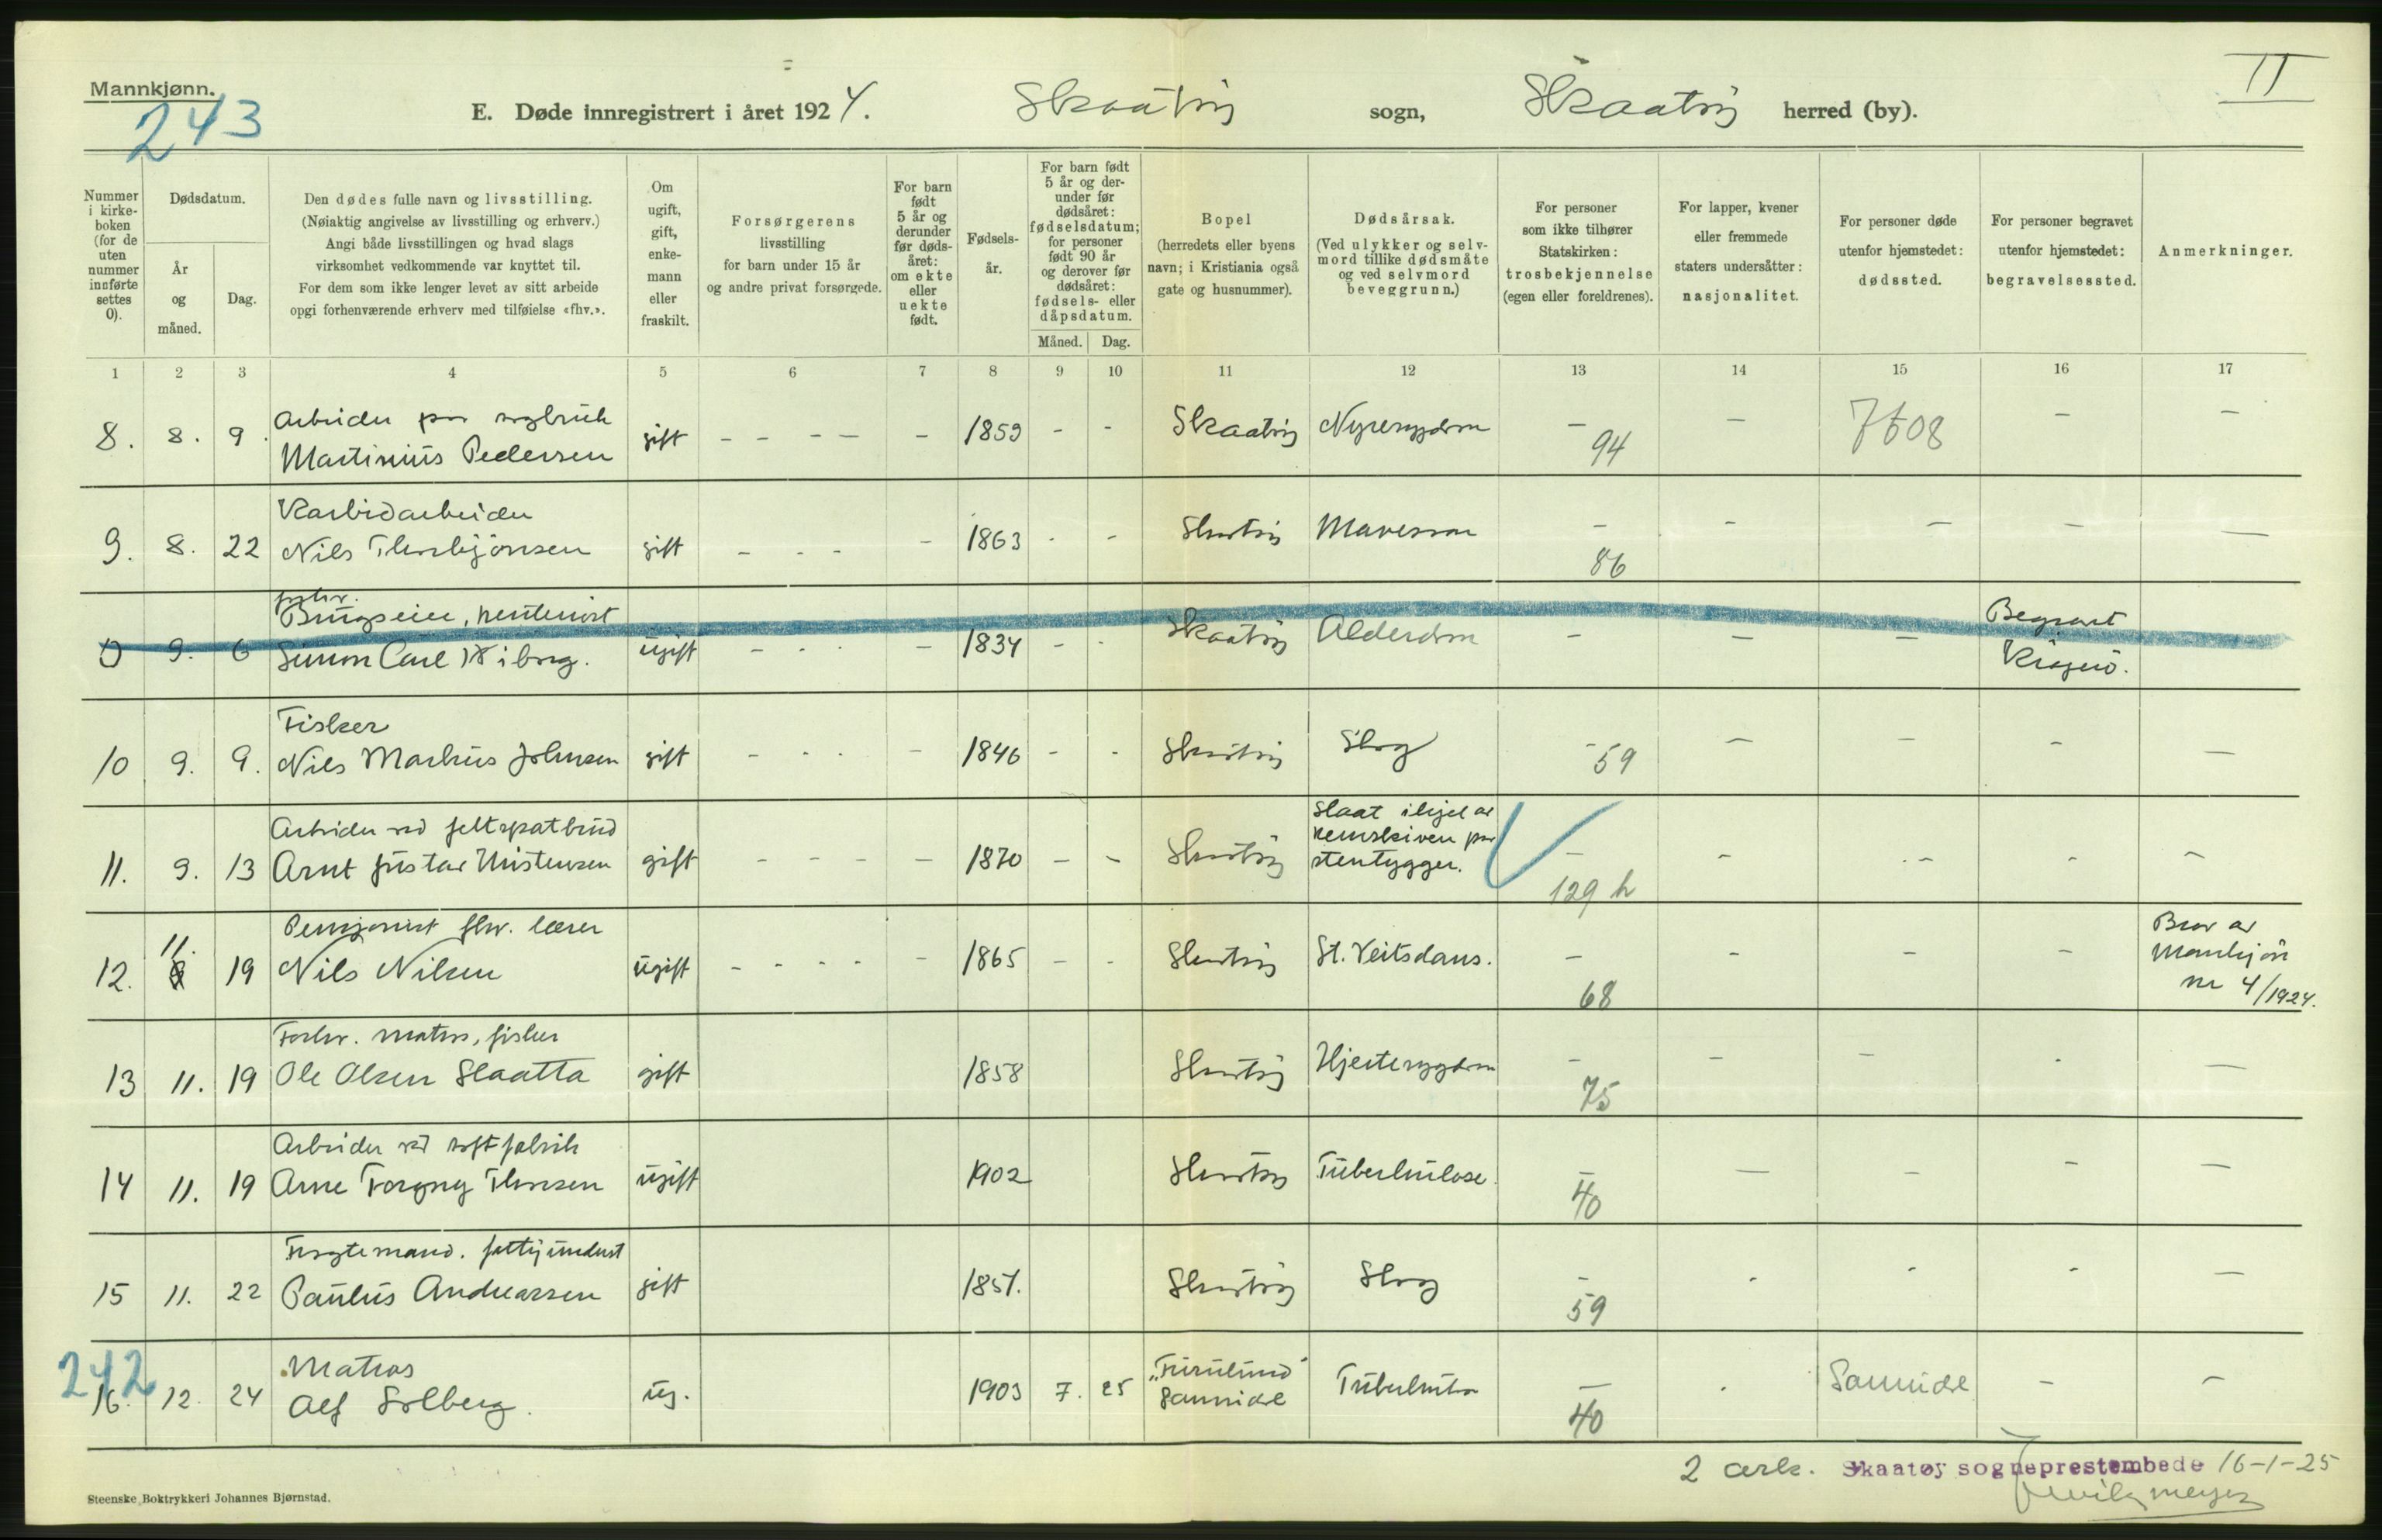 Mannkjønn.
243
E. Døde innregistrert i året 1924. Skaatøy sogn, Skaatøy herred (by).
II
Nummer i kirke-boken (for de uten nummer innførte settes 0).
Dødsdatum.
År og måned.
Dag.
Den dødes fulle navn og livsstilling.
(Nøiaktig angivelse av livsstilling og erhverv.)
Angi både livsstillingen og hvad slags
virksomhet vedkommende var knyttet til.
For dem som ikke lenger levet av sitt arbeide
opgi forhenværende erhverv med tilføielse «fhv.».
Om ugift, gift, enke-mann eller fraskilt.
Forsørgerens
livsstilling
for barn under 15 år
og andre privat forsørgede.
For barn født 5 år og derunder før døds-året: om ekte eller uekte født.
Fødsels-år.
For barn født 5 år og der-under før dødsåret: fødselsdatum; for personer født 90 år og derover før dødsåret: fødsels- eller dåpsdatum.
Måned. Dag.
Bopel
(herredets eller byens
navn; i Kristiania også
gate og husnummer).
Dødsårsak.
(Ved ulykker og selv-
mord tillike dødsmåte
og ved selvmord
beveggrunn.)
For personer
som ikke tilhører
Statskirken:
trosbekjennelse
(egen eller foreldrenes).
For lapper, kvener
eller fremmede
staters undersåtter:
nasjonalitet.
For personer døde
utenfor hjemstedet:
dødssted.
For personer begravet
utenfor hjemstedet:
begravelsessted.
Anmerkninger.
1 2 3 4 5 6 7 8 9 10 11 12 13 14 15 16 17
Arbeider paa
8. 8. 9. Martinius Pedersen gift - - - - - 1859 - - Skaatøy Nyresygdom - 94 - 7608 - -
Karbidarbeider
9. 8. 22 Nils Thorbjörnsen gift - - - - 1863 - - Skaatøy Mavesaar - 86 - - - -
forhv.
Brugseier, rentenist
0 9. 6 Simon Carl Wiborg. ugift - - - - 1834 - - Skaatøy Alderdom - - - Begravet Kragerö.
Fisker
10 9. 9. Nils Markus Johnsen gift - - - - 1846 - - Skaatøy Slag - 59 - - - -
Arbeider ved feltspatbrud
11. 9. 13 Arnt Gustav Kristensen gift - - - - 1870 - - Skaatøy Slaat ihjel av remskiven paa stentygger. - 129 h - - - -
Pensjonist fhv. lærer
12. 11. 19 Nils Nilsen ugift - - - - - 1865 - - Skaatøy St. Veitsdans. - 68 - - - Bror av Mankjön nr 4/1924.
Forhv. matros, fisker
13 11. 19 Ole Olsen Slaatta gift 1858 Skaatøy Hjertesygdom - 75 - - - -
Arbeider ved saftfabrik
14 11. 19 Arne Torgny Thorsen ugift 1902 Skaatøy Tuberkulose. - 40 - - - -
15 11. 22 Paulus Andreassen gift 1851. Skaatøy Slag - 59 - - - -
242
Matros
16. 12. 24 Alf Solberg. ug. 1903 7. 25 "Furulund" Sannidal Tuberkulose - 40 - Sannidal - -
2 ark. Skaatøy sogneprestembede 16-1-25
Meyer
Steenske Boktrykkeri Johannes Bjørnstad.